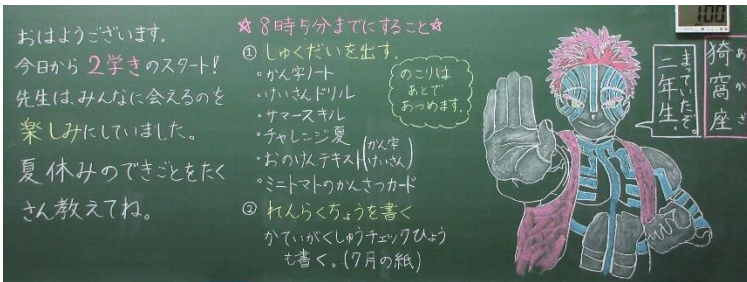 おはようございます。
今日から2学きのスタート!
先生は、みんなに会えるのを
楽しみにしていました。
夏休みのできごとをたく
さん教えてね。
☆8時5分までにすること☆
① しゅくだいを出す。
・かん字ノート
・けいさんドリル
・サマースキル
・チャレンジ夏
・おのけんテキスト(かん字
けいさん)
・ミニトマトのかんさつカード
のこりは
あとで
あつめます。
② れんらくちょうを書く
かていがくしゅうチェックひょう
も書く。(7月の紙)
まっていたぞ。
二年生.
猗窩座
あかざ
100